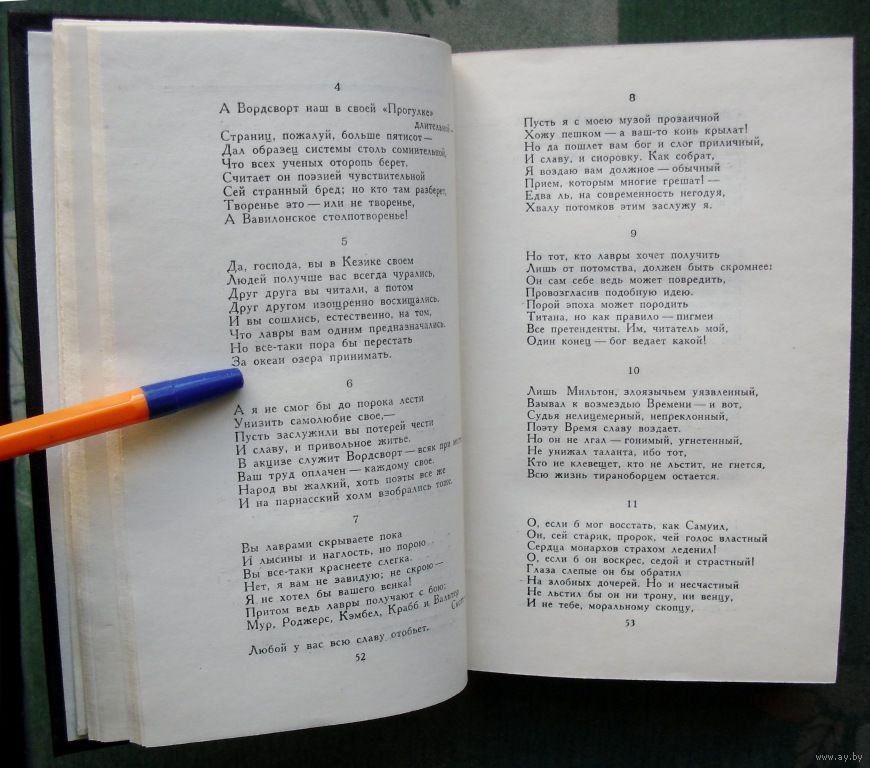 4
А Вордсворт наш в своей «Прогулке»
длительной —
Страниц, пожалуй, больше пятисот —
Дал образец системы столь сомнительной,
Что всех ученых оторопь берет.
Считает он поэзией чувствительной
Сей странный бред; но кто там разберет,
Творенье это — или не творенье,
А Вавилонское столпотворенье!
5
Да, господа, вы в Кезике своем
Людей получше вас всегда чурались,
Друг друга вы читали, а потом
Друг другом изощренно восхищались.
И вы сошлись, естественно, на том,
Что лавры вам одним предназначались.
Но всё-таки пора бы перестать
За океан озера принимать.
6
А я не смог бы до порока лести
Унизить самолюбие свое,—
Пусть заслужили вы потерей чести
И славу, и привольное житье.
В акцизе служит Вордсворт — всяк при месте
Ваш труд оплачен — каждому свое.
Народ вы жалкий, хоть поэты все же
И на парнасский холм взобрались тоже.
7
Вы лаврами скрываете пока
И лысины и наглость, но порою
Вы все-таки краснеете слегка.
Нет, я вам не завидую; не скрою —
Я не хотел бы вашего венка!
Притом ведь лавры получают с бою:
Мур, Роджерс, Кэмбел, Крабб и Вальтер
Скотт
Любой у вас всю славу отобьет.
52
8
Пусть я с моею музой прозаичной
Хожу пешком — а ваш-то конь крылат!
Но да пошлет вам бог и слог приличный,
И славу, и сноровку. Как собрат,
Я воздаю вам должное — обычный
Прием, которым многие грешат! —
Едва ль, на современность негодуя,
Хвалу потомков этим заслужу я.
9
Но тот, кто лавры хочет получить
Лишь от потомства, должен быть скромнее:
Он сам себе ведь может повредить,
Провозгласив подобную идею.
Порой эпоха может породить
Титана, но как правило — пигмеи
Все претенденты. Им, читатель мой,
Один конец — бог ведает какой!
10
Лишь Мильтон, злоязычьем уязвленный,
Взывал к возмездью Времени — и вот,
Судья нелицемерный, непреклонный,
Поэту Время славу воздает.
Но он не лгал — гонимый, угнетенный,
Не унижал таланта, ибо тот,
Кто не клевещет, кто не льстит, не гнется,
Всю жизнь тираноборцем остается.
11
О, если б мог восстать, как Самуил,
Он, сей старик, пророк, чей голос властный
Сердца монархов страхом леденил!
О, если б он воскрес, седой и страстный!
Глаза слепые он бы обратил
На злобных дочерей. Но и несчастный
Не льстил бы он ни трону, ни венцу,
И не тебе, моральному скопцу,
53
www.ay.by